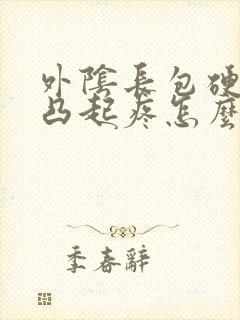 外陰長包硬
凸起疼怎麼
季春辭